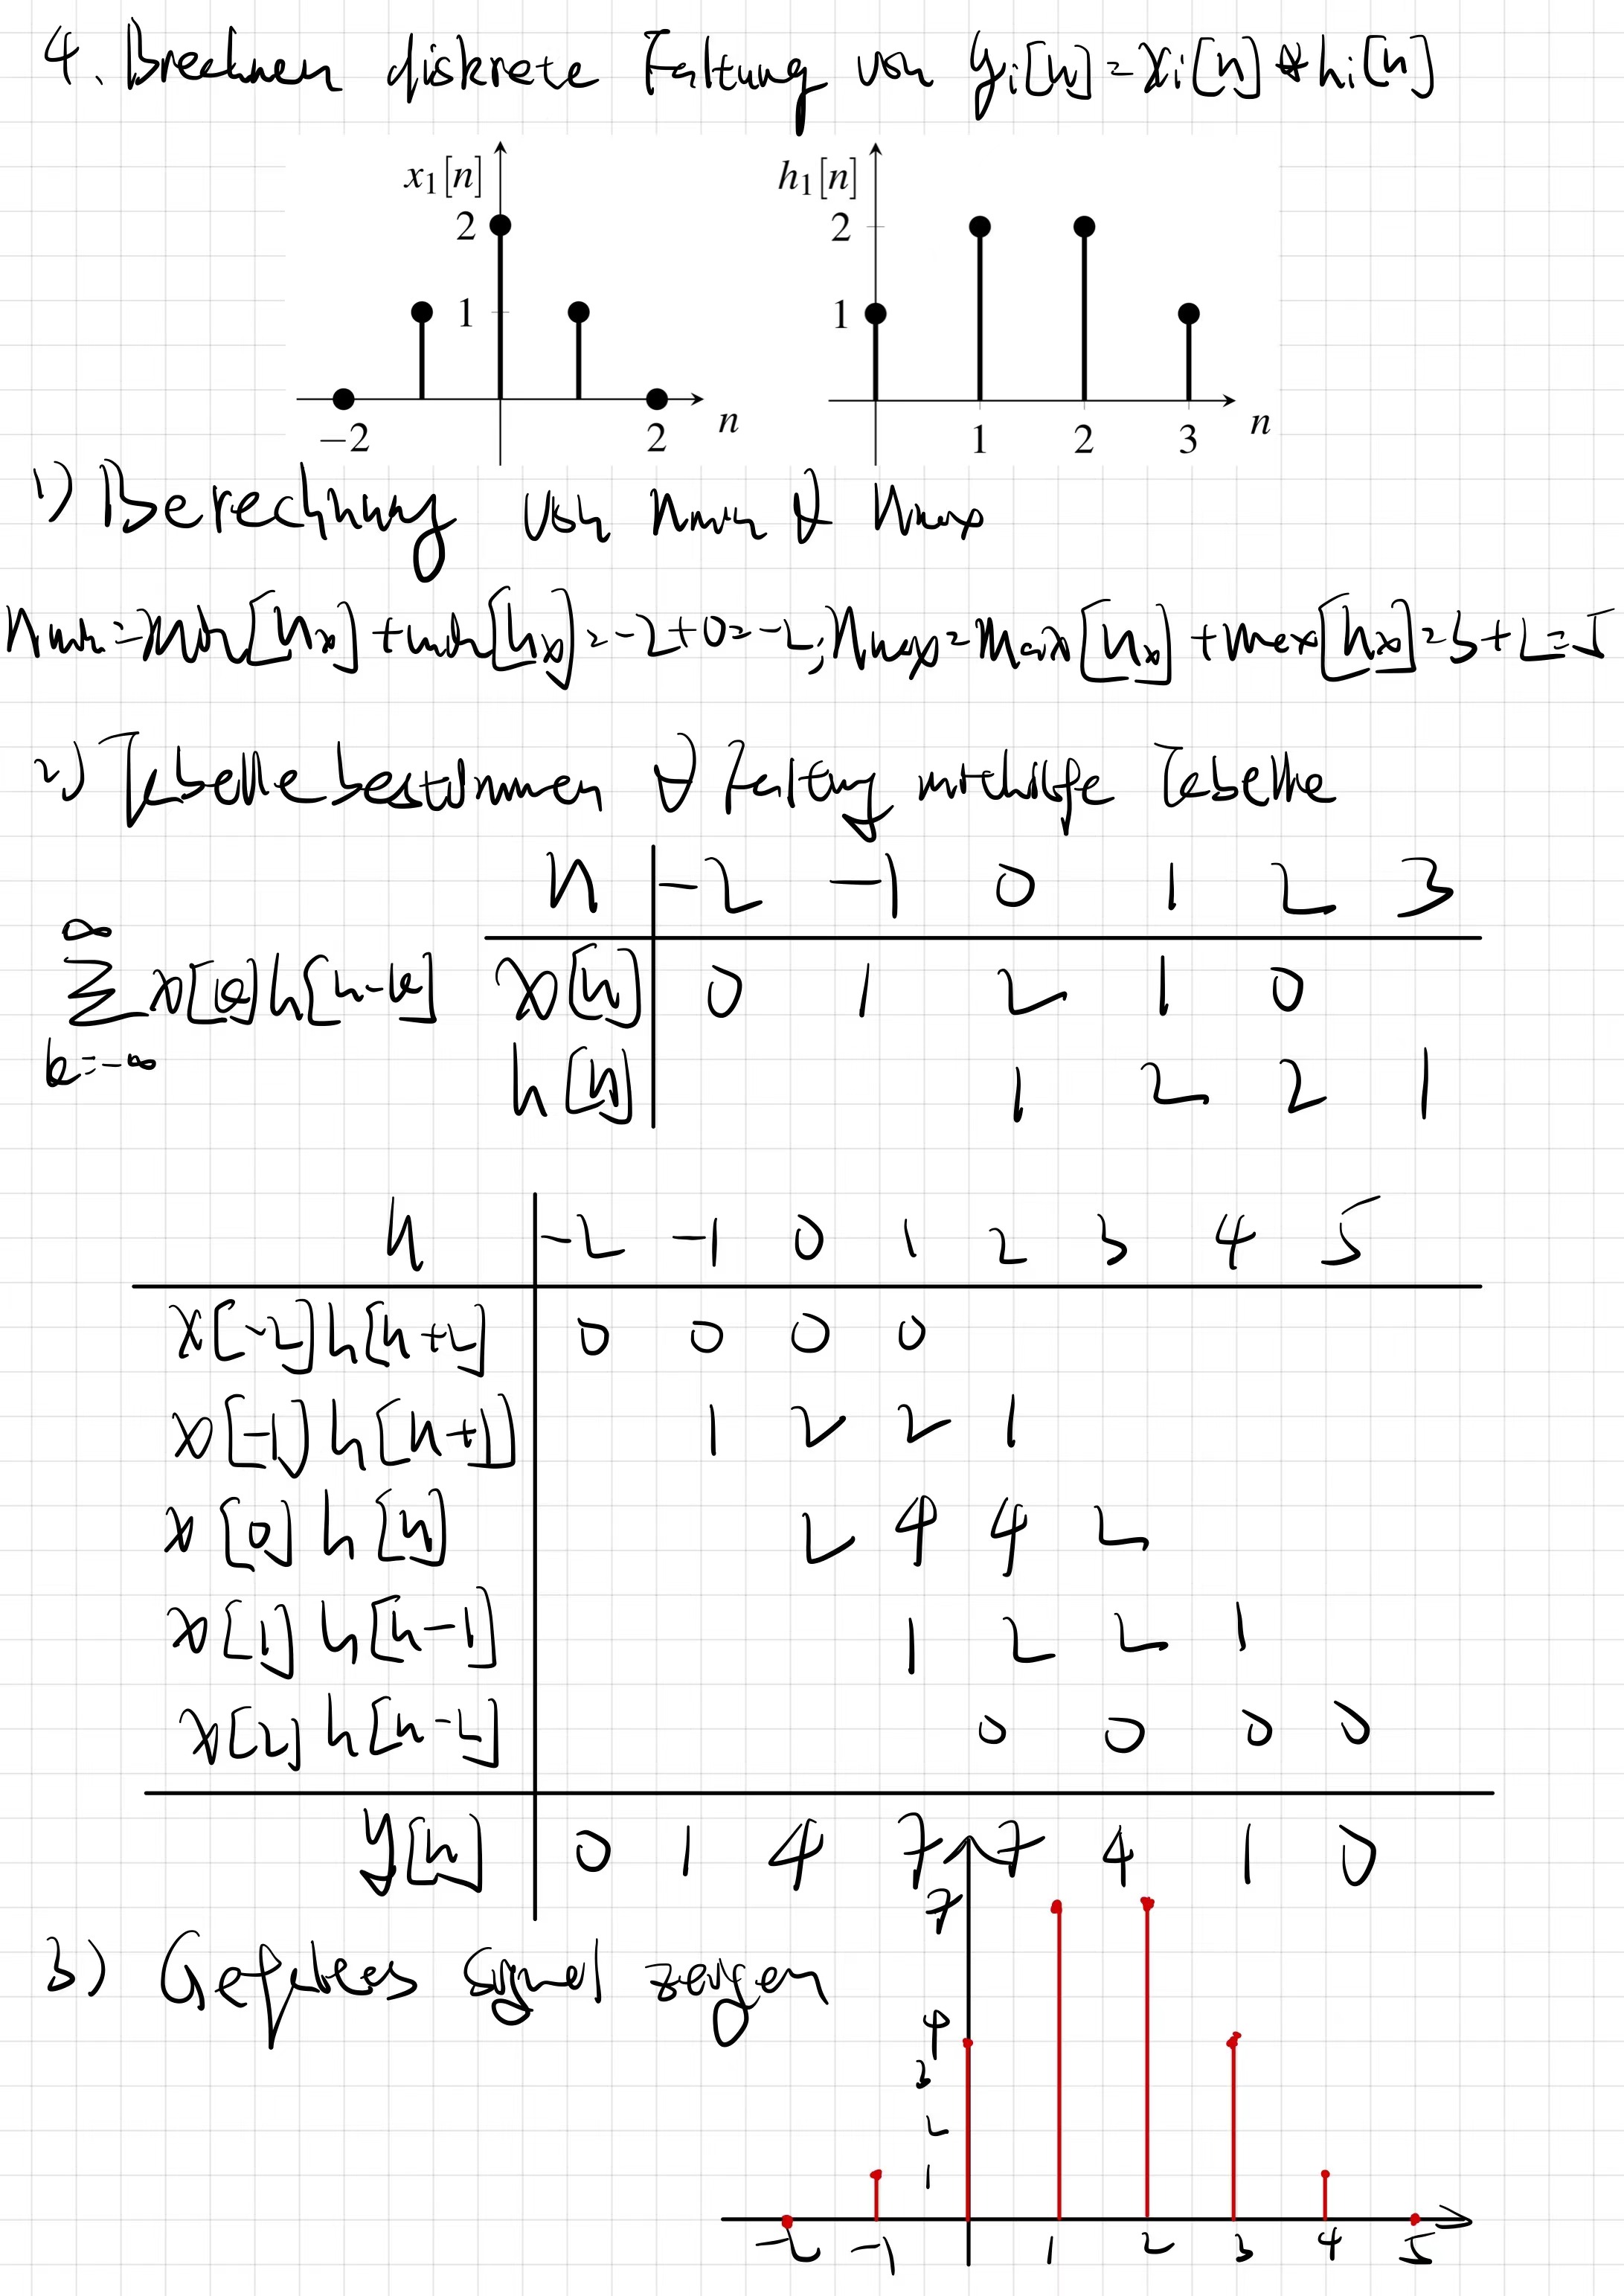 4. Brechnen diskrete Faltung von yi[n]=xi[n]*hi[n]
x1[n] h1[n]
2 2
1 1
−2 2 n 1 2 3 n
1) Berechnung von nmin & nmax
nmin=min[nx]+min[nx]=-2+0=-2; nmax=max[nx]+max[nx]=3+2=5
2) Tabelle bestimmen & Faltung mithilfe Tabelle
n -2 -1 0 1 2 3
∞
Σ x[k]h[n-k] x[n] 0 1 2 1 0
k=-∞
h[n] 1 2 2 1
n -2 -1 0 1 2 3 4 5
x[-2]h[n+2] 0 0 0 0
x[-1]h[n+1] 1 2 2 1
x[0]h[n] 2 4 4 2
x[1]h[n-1] 1 2 2 1
x[2]h[n-2] 0 0 0 0
y[n] 0 1 4 7 7 4 1 0
7
3) Signal zeigen
4
3
2
1
-2 -1 1 2 3 4 5